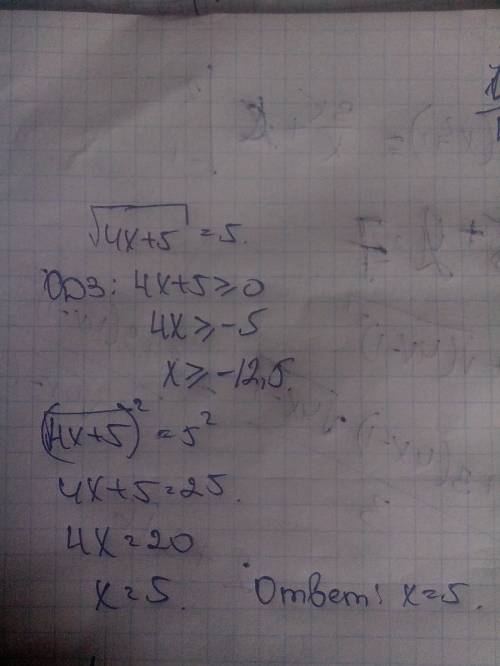 √4x+5 = 5.
ОДЗ: 4x+5 ≥ 0
4x ≥ -5
x ≥ -12,5.
(√4x+5)² = 5²
4x+5 = 25.
4x = 20
x = 5.
Ответ: x = 5.